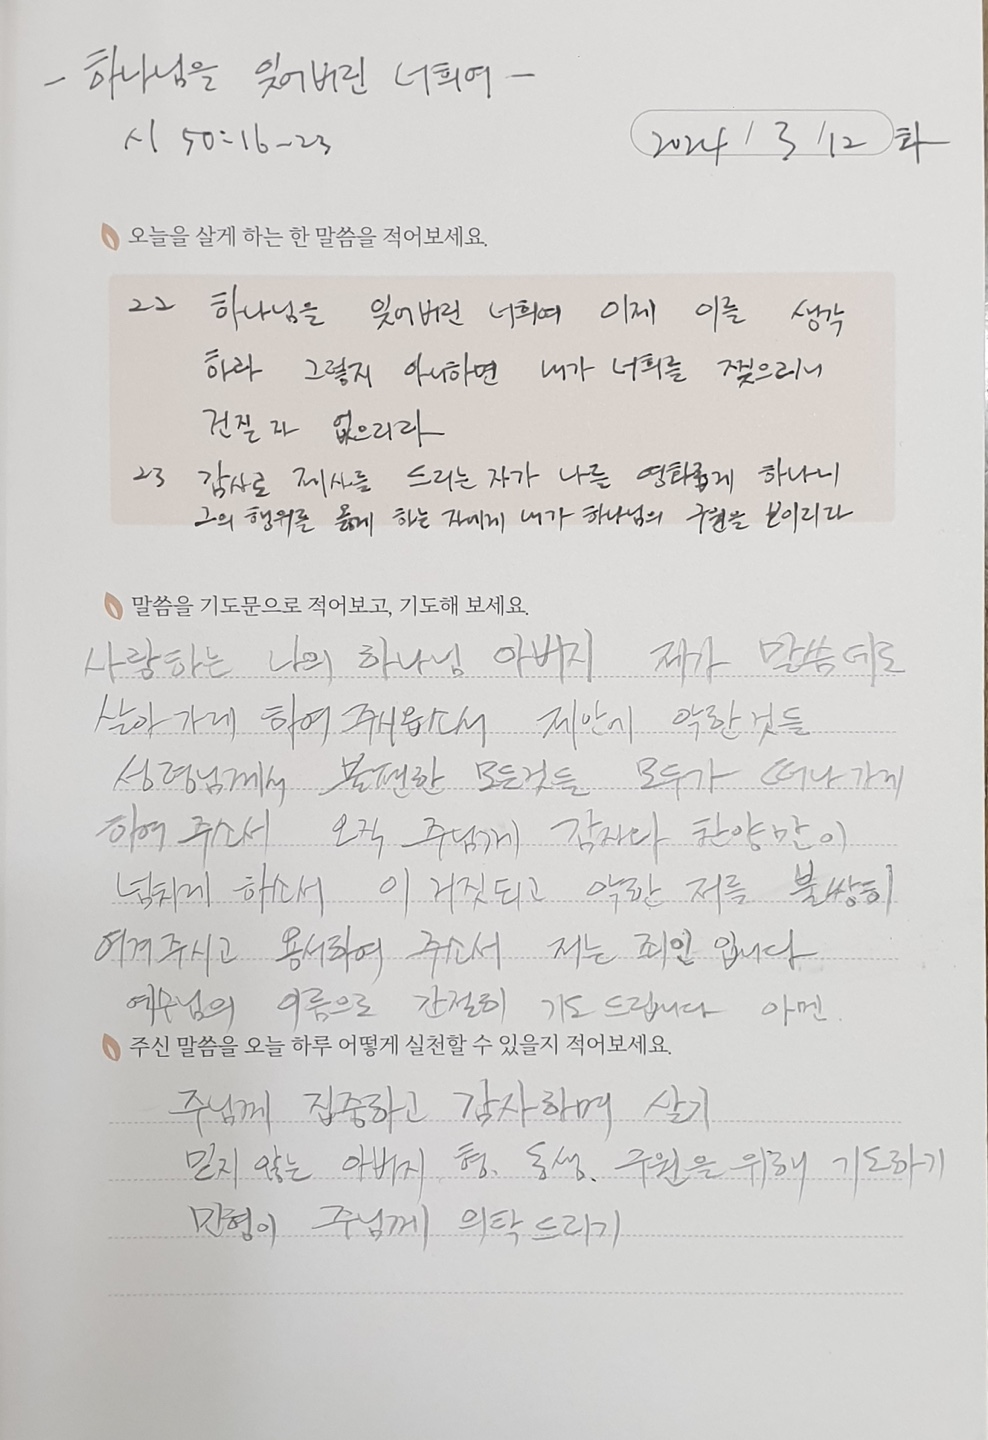 - 하나님을 잊어버린 너희여 -
시 50:16-23
2024 / 3 / 12 화
오늘을 살게 하는 한 말씀을 적어보세요.
22 하나님을 잊어버린 너희여 이제 이를 생각
하라 그렇지 아니하면 내가 너희를 찢으리니
건질 자 없으리라
23 감사로 제사를 드리는 자가 나를 영화롭게 하나니
그의 행위를 옳게 하는 자에게 내가 하나님의 구원을 보이리라
말씀을 기도문으로 적어보고, 기도해 보세요.
사랑하는 나의 하나님 아버지 제가 말씀데로
살아가게 하여 주시옵소서 제안에 악한것들
성령님께서 불편한 모든것들 모두가 떠나가게
하여 주소서 오직 주님께 감사와 찬양만이
넘치게 하소서 이 거짓되고 악한 저를 불쌍히
여겨주시고 용서하여 주소서 저는 죄인 입니다
예수님의 이름으로 간절히 기도드립니다 아멘.
주신 말씀을 오늘 하루 어떻게 실천할 수 있을지 적어보세요.
주님께 집중하고 감사하며 살기
믿지 않는 아버지, 형, 동생, 구원을 위해 기도하기
민형이 주님께 의탁드리기